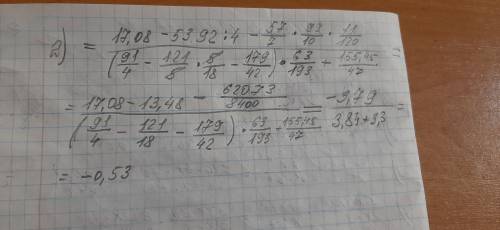 2) = 17,08 - 53.92 : 4 - 57/2 · 93/10 · 11/120
(91/4 - 121/5 · 5/18 - 179/42) · 63/193 + 155,45/47 =
= 17,08 - 13,48 - 62073/8400 = -9,79 =
(91/4 - 121/18 - 179/42) · 63/193 + 155,45/47 3,84+3,3
= -0,53